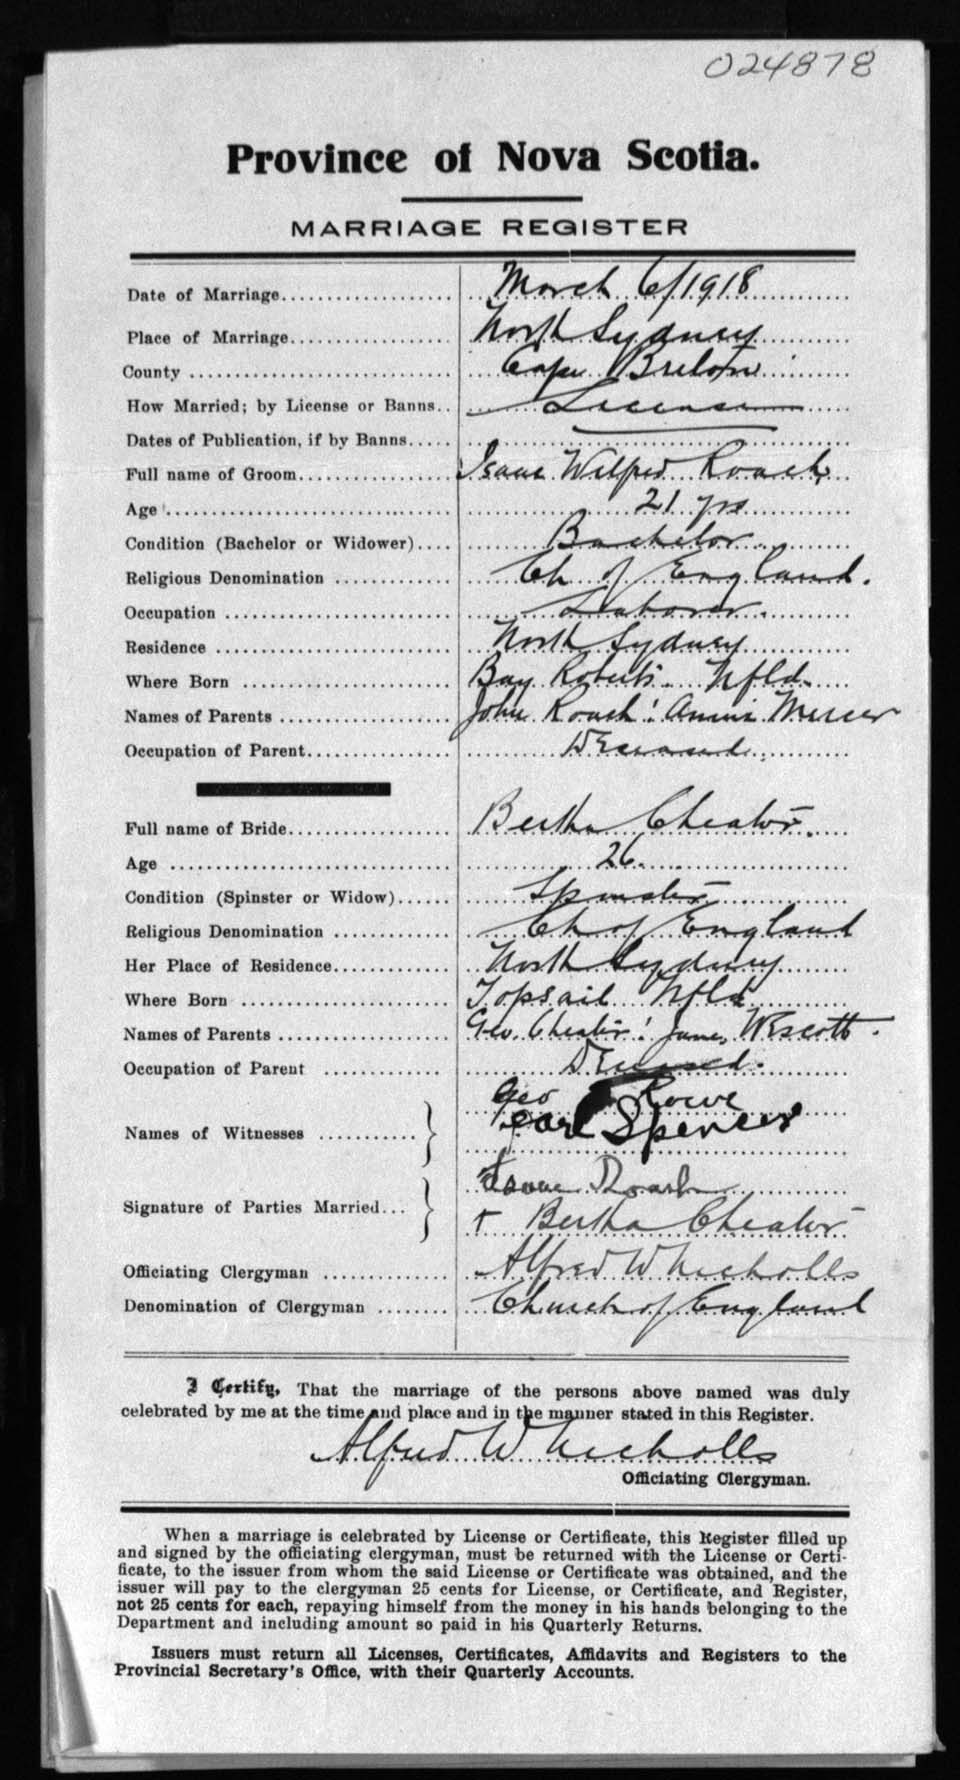 024878
Province of Nova Scotia.
MARRIAGE REGISTER
Date of Marriage March 6/1918
Place of Marriage North Sydney
County Cape Breton
How Married; by License or Banns License
Dates of Publication, if by Banns
Full name of Groom Isaac Wilfred Roach
Age 21 yrs
Condition (Bachelor or Widower) Bachelor
Religious Denomination Ch of England.
Occupation Laborer.
Residence North Sydney
Where Born Bay Roberts Nfld.
Names of Parents John Roach: Annie Mercer
Occupation of Parent Deceased
Full name of Bride Bertha Cheator.
Age 26.
Condition (Spinster or Widow) Spinster
Religious Denomination Ch of England
Her Place of Residence North Sydney
Where Born Topsail Nfld
Names of Parents Geo. Cheator: Jane Wescott.
Occupation of Parent Deceased.
Geo Rowe
Names of Witnesses Spencer
Isaac Roach
Signature of Parties Married
+ Bertha Cheator
Officiating Clergyman Alfred W Nicholls
Denomination of Clergyman Church of England
I Certify, That the marriage of the persons above named was duly
celebrated by me at the time and place and in the manner stated in this Register.
Alfred W Nicholls
Officiating Clergyman.
When a marriage is celebrated by License or Certificate, this Register filled up
and signed by the officiating clergyman, must be returned with the License or Certi-
ficate, to the issuer from whom the said License or Certificate was obtained, and the
issuer will pay to the clergyman 25 cents for License, or Certificate, and Register,
not 25 cents for each, repaying himself from the money in his hands belonging to the
Department and including amount so paid in his Quarterly Returns.
Issuers must return all Licenses, Certificates, Affidavits and Registers to the
Provincial Secretary's Office, with their Quarterly Accounts.